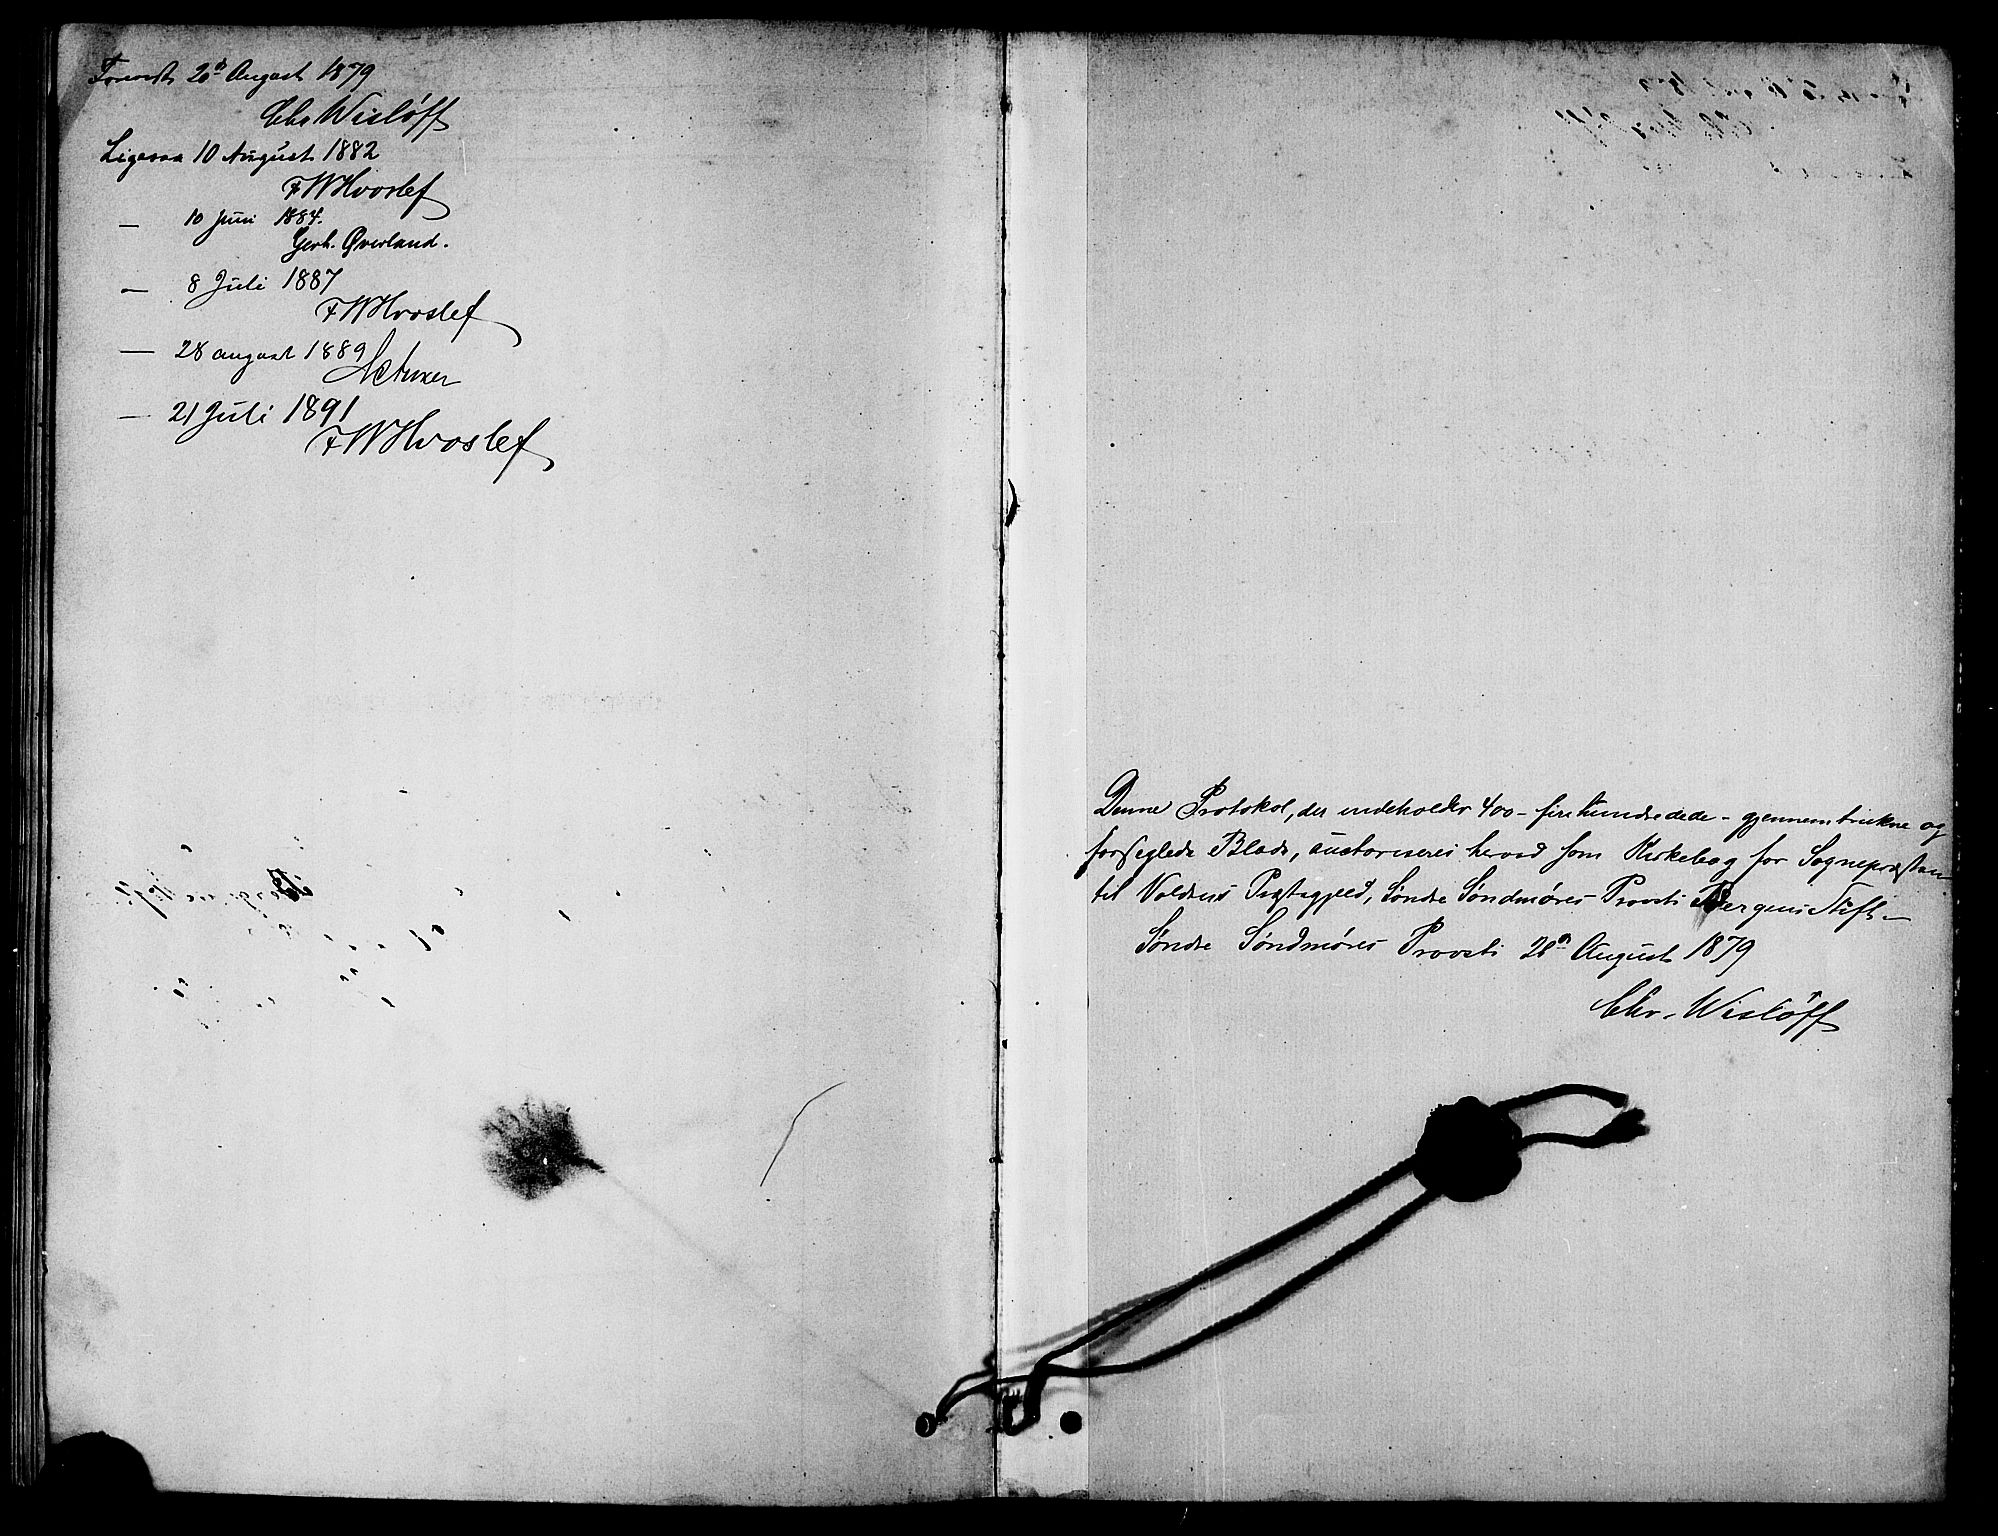 Forevist 20de August 1879
Chr Wisløff
Ligesaa 10 August 1882
FWHvoslef
— 10 Juni 1884.
Gerh. Øverland.
— 8 Juli 1887
FWHvoslef
— 28 august 1889
— 21 Juli 1891
FWHvoslef
Denne Protokol, der indeholder 400 - fire hundrede - gjennemtrukne og
forseglede Blade, auctoriseres herved som Kirkebog for Sognepræsten
til Voldens Præstegjeld, Søndre Søndmøres Provsti Bergens Stift. —
Søndre Søndmøres Provsti 20de August 1879
Chr. Wisløff